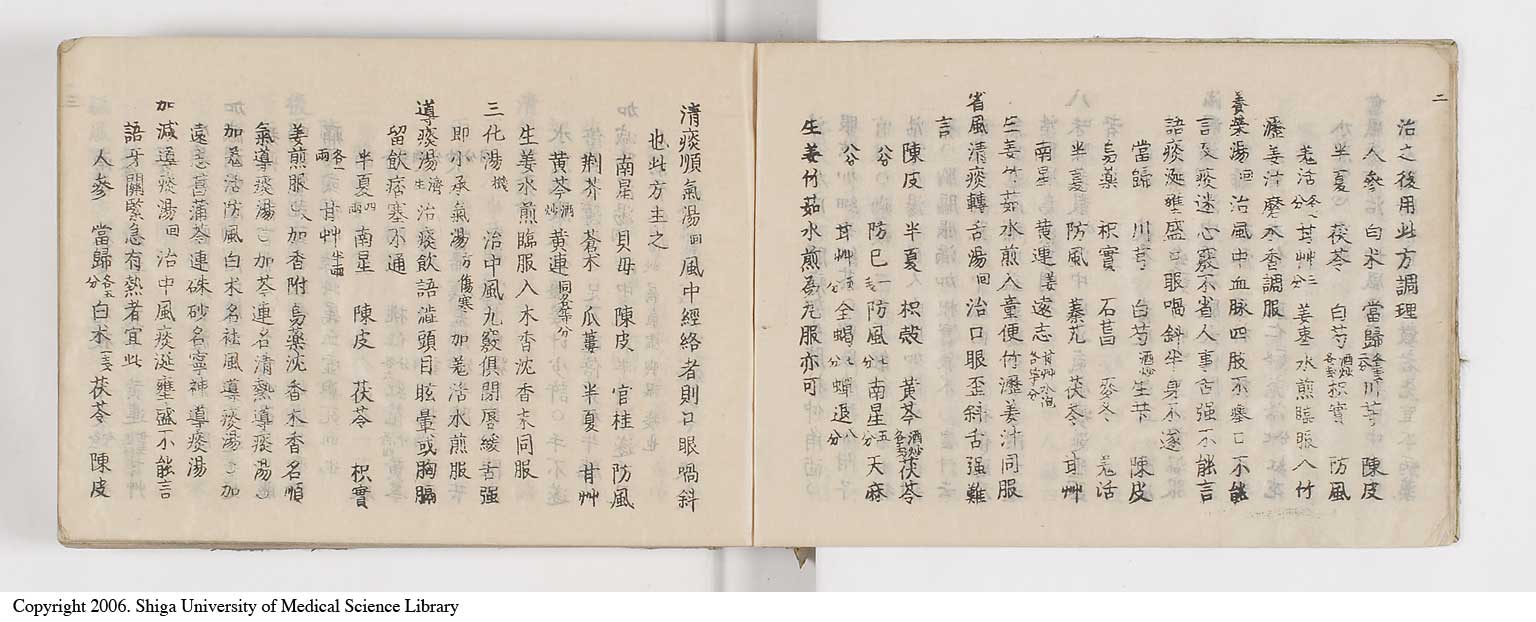 二
治之後用此方調理
人參 白朮 當歸 川芎 陳皮
半夏 茯苓 白芍酒炒 枳實 防風
羌活 甘艸 姜 水煎臨服入竹
瀝姜汁磨木香調服
養榮湯回 治風中血脉四肢不 口不能
言及痰迷心竅不省人事舌强不能言
語痰涎壅盛口眼喎斜半身不遂
當歸 川芎 白芍酒炒 生芐 陳皮
烏藥 枳實 石菖 麥冬 羌活
半夏 防風 秦艽 茯苓 甘艸
南星 黃連姜 遠志
生姜竹茹水煎入童便竹瀝姜汁同服
省風清痰轉舌湯回 治口眼歪斜舌强難
言
陳皮 半夏 枳殼 黃芩酒炒 茯苓
甘艸 防己 防風 南星 天麻
全蝎 蟬退
生姜竹茹水煎為丸服亦可
清痰順氣湯回 風中經絡者則口眼喎斜
也此方主之
南星 貝母 陳皮 官桂 防風
荆芥 蒼朮 瓜蔞 半夏 甘艸
黃芩酒炒 黃連同各等分
生姜水煎臨服入木香沈香末同服
三化湯機 治中風九竅俱閉唇緩舌强
即小承氣湯方傷寒 加羌活水煎服
導痰湯濟生 治痰飲語澁頭目眩暈或胸膈
留飲痞塞不通
半夏四兩 南星 陳皮 茯苓 枳實
各一兩 甘艸半兩
姜煎服 加香附烏藥沈香木香名順
氣導痰湯 加芩連名清熱導痰湯
加羌活防風白朮名祛風導痰湯 加
遠志菖蒲芩連硃砂名寧神導痰湯
加減導痰湯回 治中風痰涎壅盛不能言
語牙關緊急有熱者宜此
人參 當歸各五分 白朮一戔 茯苓 陳皮
三
Copyright 2006. Shiga University of Medical Science Library